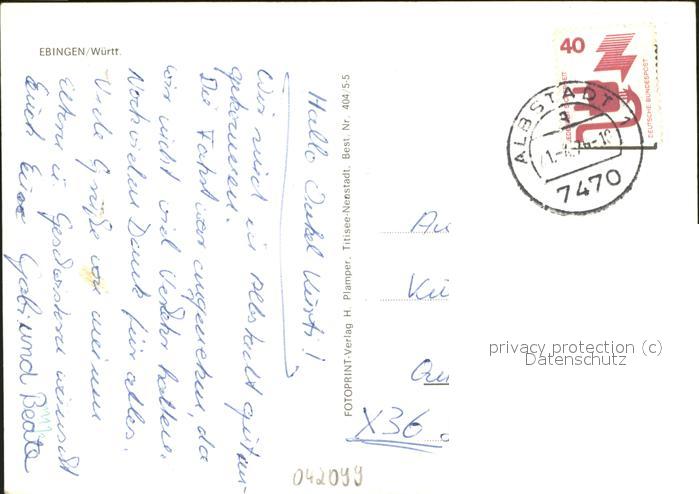 EBINGEN/Württ.
Hallo Onkel Kurt!
Wir sind in Albstadt gut an-
gekommen.
Die Fahrt war angenehm, da
wir nicht viel Verkehr hatten.
Noch vielen Dank für alles.
Viele Grüße von meinen
Eltern u. Geschwistern wünscht
Euch Eure Gabi und Beate
FOTOPRINT-Verlag H. Plamper, Titisee-Neustadt, Best. Nr. 404/5-5
40
DEUTSCHE BUNDESPOST
ALBSTADT 1
7470
privacy protection (c)
Datenschutz
X36
042099